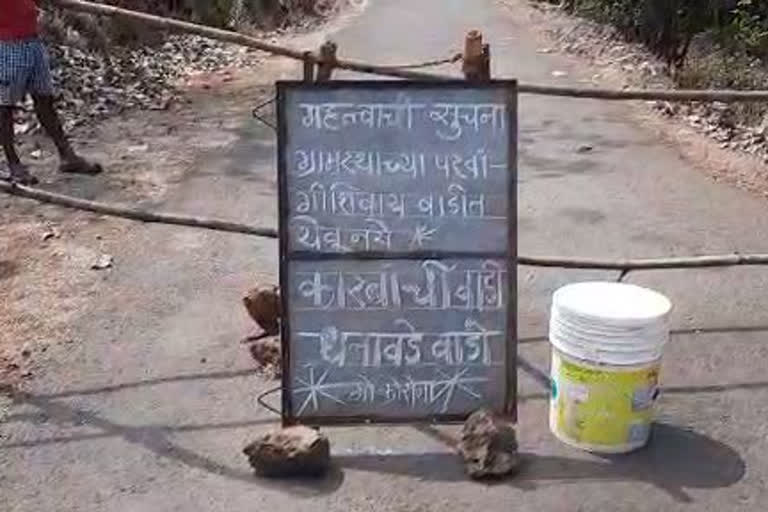 महत्वाची सूचना
ग्रामस्थाच्या परवां-
गीशिवाय वाडीत
येवू नये
कारबांची वाडी
धनावडे वाडी
गो कोरोना